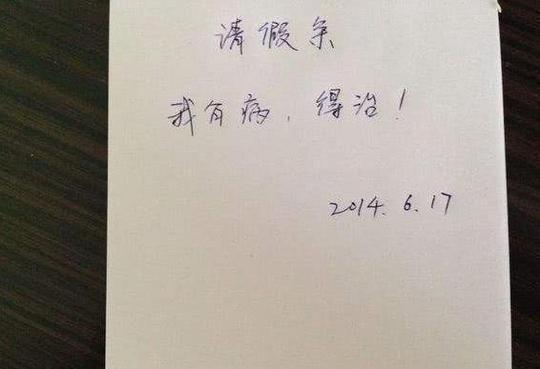 请假条
我有病，得治！
2014.6.17